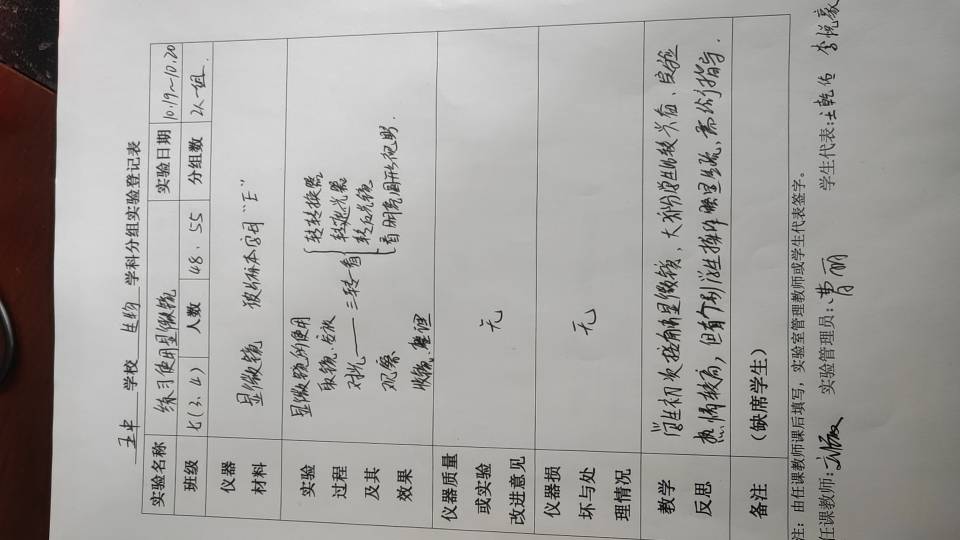 五中 学校 生物 学科分组实验登记表
实验名称 练习使用显微镜 实验日期 10.19~10.20
班级 七(3、4) 人数 48、55 分组数 2人一组
仪器材料 显微镜 玻片标本写用“E”
实验过程及其效果
显微镜的使用
取镜、安放
对光——三转一看
转转换器
转遮光器
转反光镜
看明亮圆形视野.
观察
收镜、整理
仪器质量或实验改进意见 无
仪器损坏与处理情况 无
教学反思
学生初次接触显微镜,大部分学生比较兴奋、实验
热情较高,但有个别学生操作出现混乱,需个别指导.
备注 (缺席学生)
注:由任课教师课后填写,实验室管理教师或学生代表签字。
任课教师: 实验管理员:曹丽 学生代表:王乾佑 李悦豪